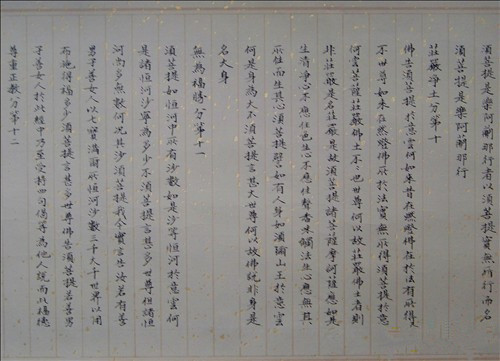 須菩提是樂阿蘭那行者以須菩提實無所行而名
須菩提是樂阿蘭那行
莊嚴淨土分第十
佛告須菩提於意云何如來昔在然燈佛在於法有所得
不世尊如來在然燈佛所於法實無所得須菩提於意
何雲菩薩莊嚴佛土不不也世尊何以故莊嚴佛土者則
非莊嚴是名莊嚴是故須菩提諸菩薩摩訶薩應如是
生清淨心不應住色生心不應住聲香味觸法生心應無
所住而生其心須菩提譬如有人身如須彌山王於意雲
何是身為大不須菩提言甚大世尊何以故佛說非身是
名大身
無為福勝分第十一
須菩提如恒河中所有沙數如是沙等恒河於意雲何
是諸恒河沙寧為多不須菩提言甚多世尊但諸恒
河尚多無數何況其沙須菩提我今實言告汝若有善
男子善女人以七寶滿爾所恒河沙數三千大千世界以用
布施得福多不須菩提言甚多世尊佛告須菩提若善男
子善女人於此經中乃至受持四句偈等為他人說而此福德
尊重正教分第十二